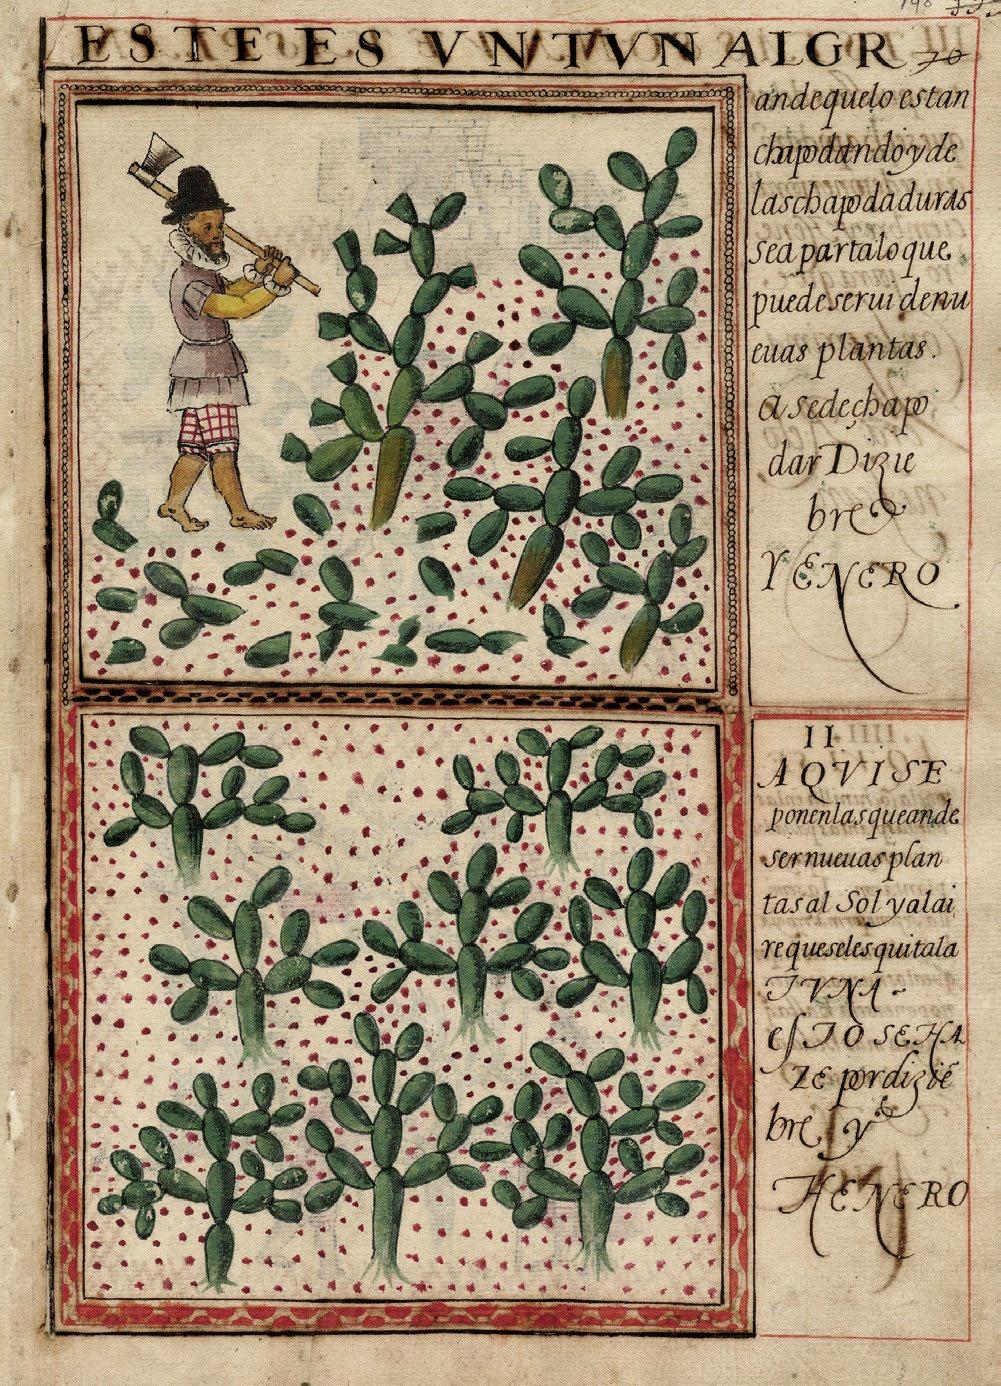 ESTE ES VN TVNALGR
andequelo estan
chapodandoy de
laschapodaduras
sea partaloque
puede serui denu
euas plantas.
A se deçhapo
dar Dizie
bre
YENERO
II
AQVISE
ponenlasqueande
sernueuas plan
tas al Sol yalai
requeselesquitala
TVNA
esTO SEHA
ZE pordizie
bre y
HENERO